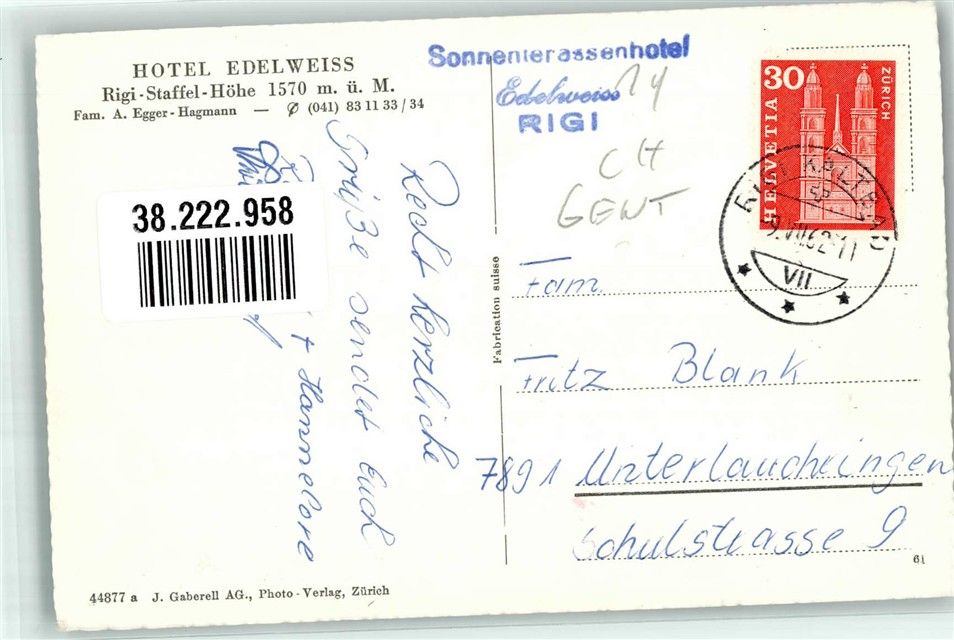 HOTEL EDELWEISS
Rigi-Staffel-Höhe 1570 m. ü. M.
Fam. A. Egger-Hagmann — ✆ (041) 83 11 33 / 34
Sonnenterassenhotel
Edelweiss
RIGI
CH
GEWT
30
ZÜRICH
HELVETIA
KALTBAD
9.VII.62-11
VII
38.222.958
Recht herzliche
Grüße sendet Euch
+ Hannelore
Fabrication suisse
Fam.
Fritz Blank
7891 Unterlauchringen
Schulstrasse 9
61
44877 a J. Gaberell AG., Photo-Verlag, Zürich